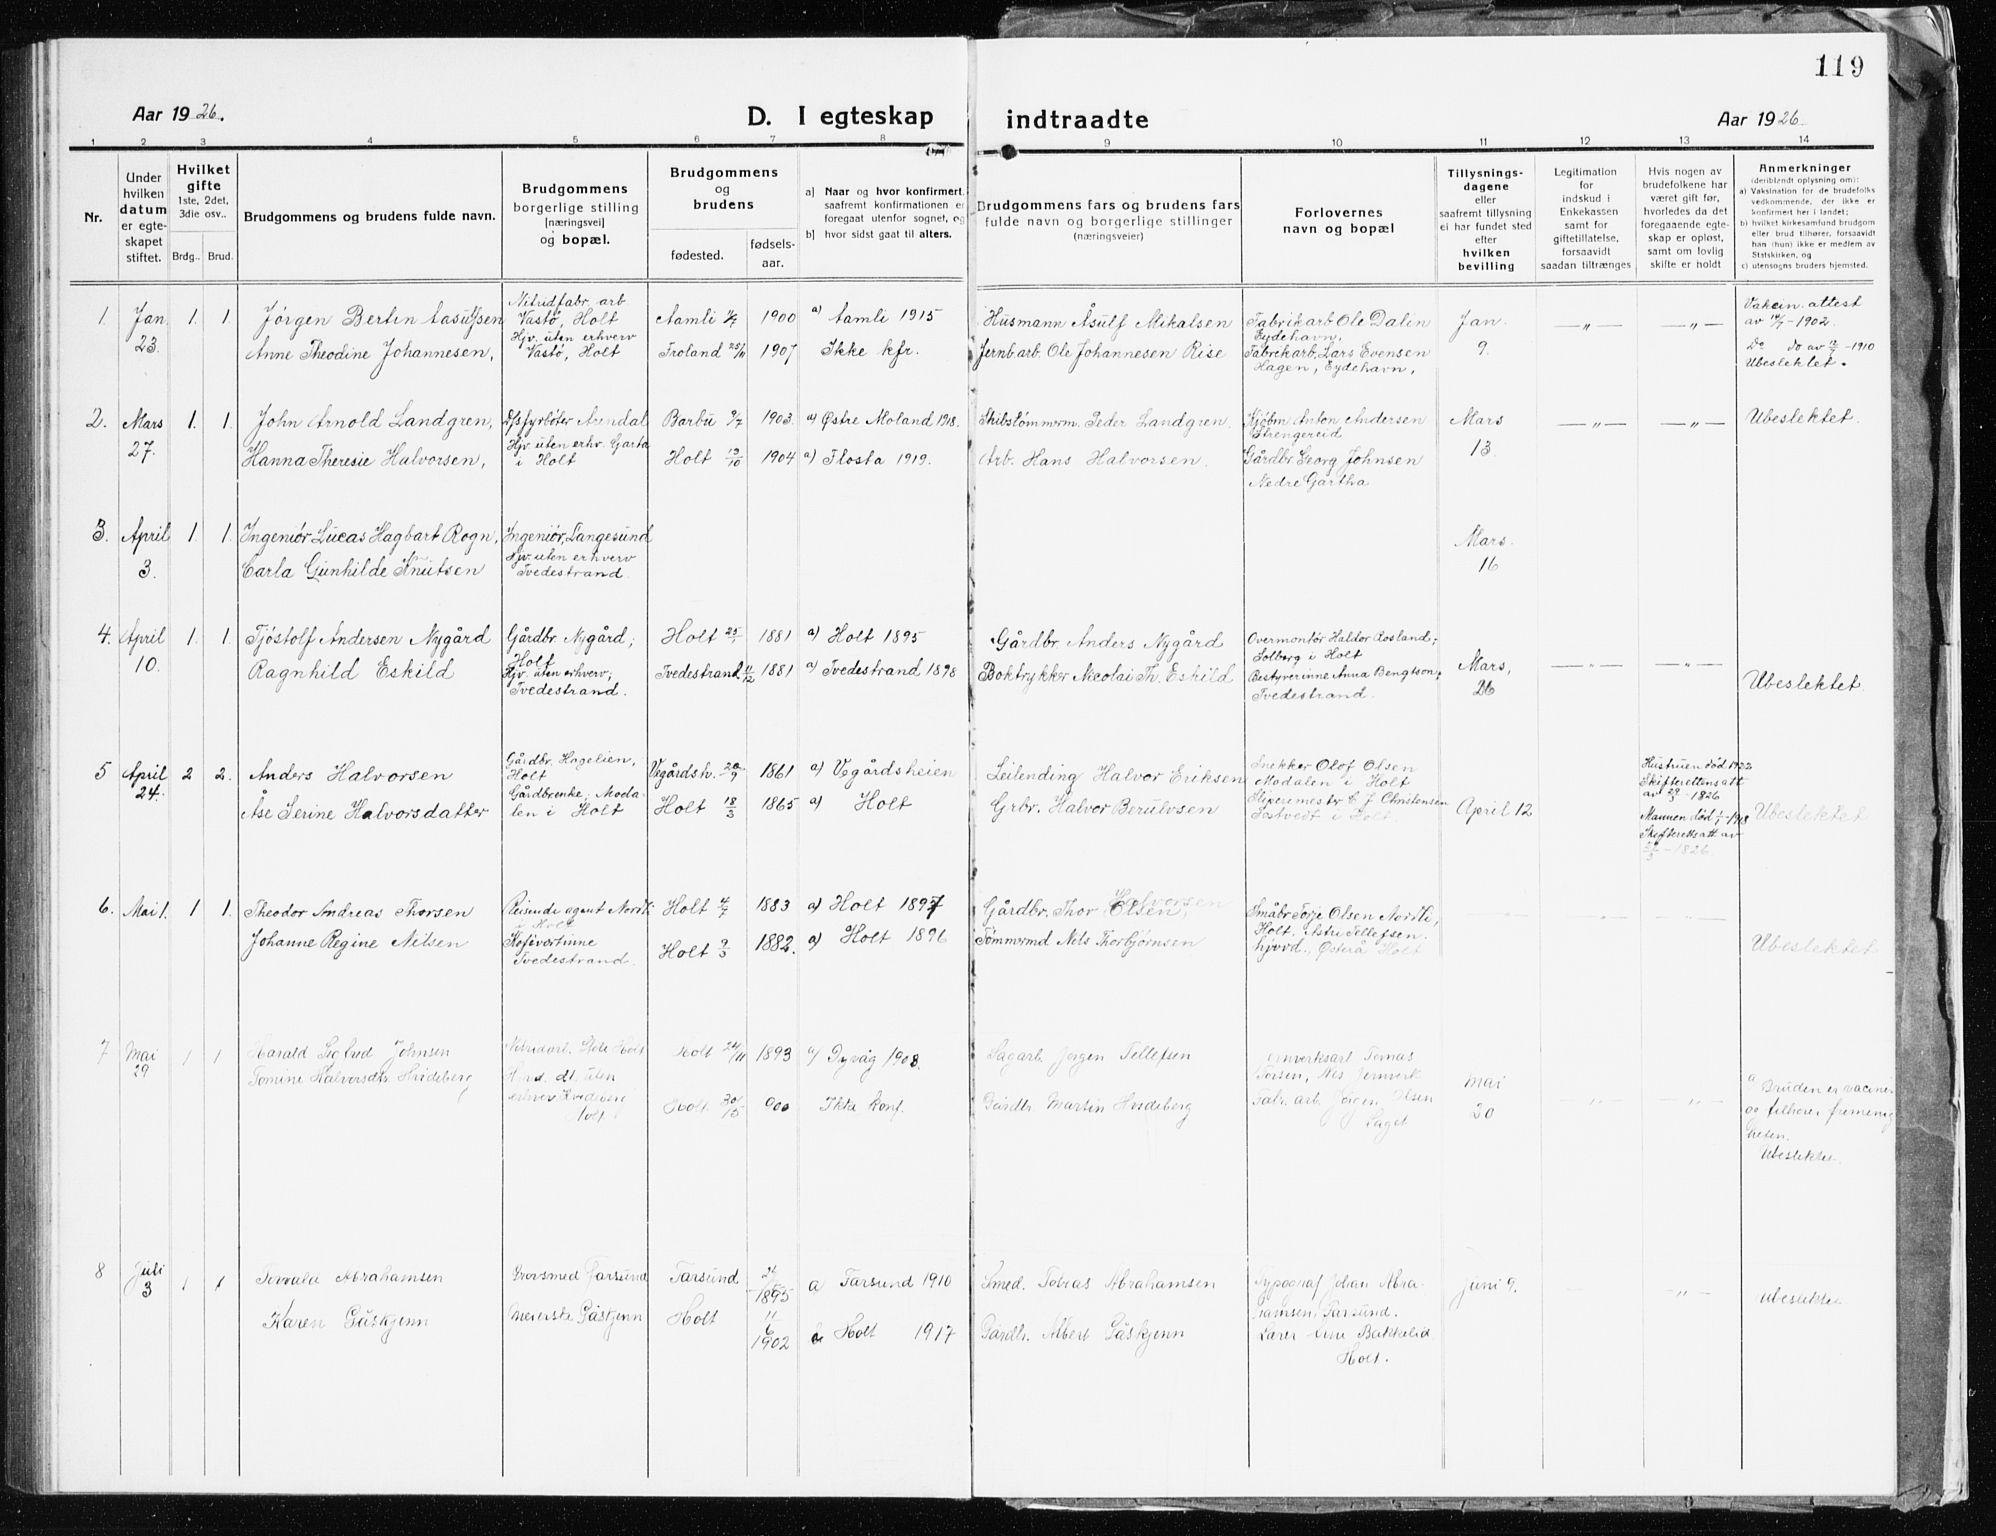 119
Aar 1926.
D. I egteskap indtraadte
Aar 1926
1 2 3 4 5 6 7 8 9 10 11 12 13 14
Nr.
Under
hvilken
datum
er egte-
skapet
stiftet.
Hvilket
gifte
1ste, 2det,
3die osv..
Brdg.. Brud.
Brudgommens og brudens fulde navn.
Brudgommens
borgerlige stilling
[næringsvei]
og bopæl.
Brudgommens
og
brudens
fødested.
fødsels-
aar.
a) Naar og hvor konfirmert,
saafremt konfirmationen er
foregaat utenfor sognet, og
b) hvor sidst gaat til alters.
Brudgommens fars og brudens fars
fulde navn og borgerlige stillinger
(næringsveier)
Forlovernes
navn og bopæl
Tillysnings-
dagene
eller
saafremt tillysning
ei har fundet sted
efter
hvilken
bevilling
Legitimation
for
indskud i
Enkekassen
samt for
giftetillatelse,
forsaavidt
saadan tiltrænges
Hvis nogen av
brudefolkene har
været gift før,
hvorledes da det
foregaaende egte-
skap er opløst,
samt om lovlig
skifte er holdt
Anmerkninger
(deriblandt oplysning om):
a) Vaksination for de brudefolks
vedkommende, der ikke er
konfirmert her i landet;
b) hvilket kirkesamfund brudgom
eller brud tilhører, forsaavidt
han (hun) ikke er medlem av
Statskirken, og
c) utensogns bruders hjemsted.
1. Jan 23. 1. 1.
Jørgen Bertin Aasulfsen
Anne Theodine Johannesen,
Nitridfabr. arb
Vastø, Holt
Hjv. uten erhverv
Vastø, Holt
Aamli 1900 a) Aamli 1915
Froland 25/11 1907 Ikke kfr.
Husmann Åsulf Mikalsen
Jernb arb. Ole Johannesen Rise
Fabrikarb Ole Dalin
Eydehavn,
Fabrikarb, Lars Evensen
Hagen, Eydehavn,
Jan. 9.
—„— —„—
Vakcin. attest
av 1902.
Do do av 1910
Ubeslektet.
2. Mars 27. 1. 1.
John Arnold Landgren,
Hanna Theresie Halvorsen,
Dfsfyrbøter Arendal
Hjv. uten erhv. Garta
i Holt
Barbu 9/7 1903. a) Østre Moland 1918.
Holt 19/10 1904 a) Flosta 1919.
Skibstømmerm. Peder Landgren.
Arb. Hans Halvorsen.
Kjøbm Anton Andersen
Strengereid
Gårdbr Georg Johnsen
Nedre Gartha
Mars 13.
—„— —„—
Ubeslektet.
3. April 3. 1. 1.
Ingeniør Lucas Hagbart Rogn,
Carla Gunhilde Knutsen
Ingeniør, Langesund
Hjv. uten erhverv
Tvedestrand.
Mars. 16
4. April 10. 1. 1.
Tjøstolf Andersen Nygård
Ragnhild Eskild
Gårdbr. Nygård;
Holt
Hjv. uten erhverv;
Tvedestrand.
Holt 25/1 1881 a) Holt 1895
Tvedestrand 11/12 1881 a) Tvedestrand 1898
Gårdbr. Anders Nygård
Boktrykker Nicolai Th. Eskild
Overmontør Haldor Rosland;
Solberg i Holt
Bestyrerinne Anna Bengtson;
Tvedestrand.
Mars, 26
—„— —„—
Ubeslektet.
5 April 24. 2 2.
Anders Halvorsen
Åse Serine Halvorsdatter
Gårdbr. Hagelien,
Holt
Gårdbrenke, Moda-
len i Holt
Vegårdsh. 20/9 1861 a) Vegårdsheien
Holt 18/3 1865 a) Holt
Leilending Halvor Eriksen
Grbr. Halvor Berulvsen
Snekker Olof Olsen
Modalen i Holt
Stiperemestr C J Christensen
i Holt.
April 12
Hustruen död 1922
Skifterettens att
av 29/3 - 1826
Mannen död 1/1 - 1918
Skifteretts att. av
- 1826.
Ubeslektet
6. Mai 1. 1 1.
Theodor Andreas Thorsen
Johanne Regine Nilsen
Reisende agent Nordli
i Holt
Kafevertinne
Tvedestrand.
Holt 4/7 1883 a) Holt 1897
Holt 9/3 1882. a) Holt 1896
Gårdbr. Thor Olsen, Halvorsen
Tømmermd Nils Thorbjørnsen
Småbr Terje Olsen Nordli,
Holt. Astri Tellefsen.
hjvvd., Østerå Holt
Ubeslektet
7 Mai 29 1 1
Harald Sigfred Johnsen
Tomine Halvorsdtr. Hvideberg
Nitridarb. Holt
uten
erhverv
Holt
Holt 24/11 1893 a) Dypvåg 1908.
Holt. 1900 Ikke konf.
Sagarb. Jørgen Tellefsen
Gårdbr. Martin Hvideberg
Jernverksarb Tomas
Torsen, Nes Jernverk
Fabr. arb Jørgen Olsen
Saget
Mai 20
—„— —„—
a Bruden er vaciner
og tilhører frimenig
heten.
Ubeslektet.
8 Juli 3 1 1
Torvald Abrahamsen
Karen Gåskjenn
Grovsmed Farsund
Meierske Gåskjenn
Farsund 24/5 1895 a Farsund 1910
Holt 11/6 1902 a Holt 1917
Smed. Tobias Abrahamsen
Gårdbr. Albert Gåskjenn
Typograf Johan Abra-
hamsen, Farsund.
Lærer Bakkelid
Holt.
Juni 9.
— —„—
Ubeslektet